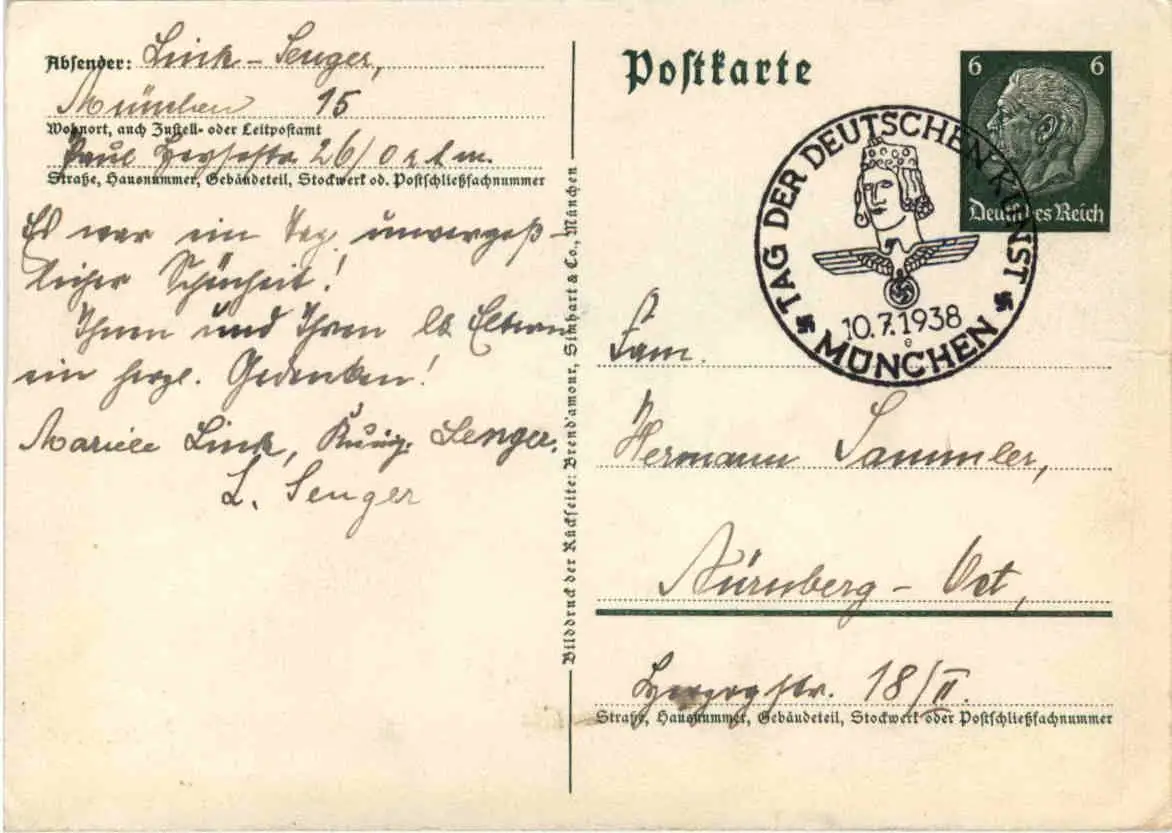 Absender: Link - Senger,
München 15
Wohnort, auch Zustell- oder Leitpostamt
Paul Heysestr. 26/0
Straße, Hausnummer, Gebäudeteil, Stockwerk od. Postschließfachnummer
Es war ein Tag unvergeß-
licher Schönheit!
Ihnen und Ihren lb. Eltern
ein herzl. Gedenken!
Link, Senger.
L. Senger
Bilddruck der Rückseite: Brend'amour, Simhart & Co., München
Postkarte
6 6
Deutsches Reich
TAG DER DEUTSCHEN KUNST
10.7.1938
e
MÜNCHEN
Fam.
Hermann Sammler,
Nürnberg - Ost,
Herzogstr. 18/II.
Straße, Hausnummer, Gebäudeteil, Stockwerk oder Postschließfachnummer